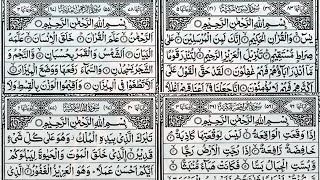 بِسْمِ اللهِ الرَّحْمٰنِ الرَّحِيْمِ
يٰسٓ وَالْقُرْاٰنِ الْحَكِيْمِ اِنَّكَ لَمِنَ الْمُرْسَلِيْنَ عَلٰى
صِرَاطٍ مُّسْتَقِيْمٍ تَنْزِيْلَ الْعَزِيْزِ الرَّحِيْمِ لِتُنْذِرَ قَوْمًا مَّآ
اُنْذِرَ اٰبَآؤُهُمْ فَهُمْ غٰفِلُوْنَ لَقَدْ حَقَّ الْقَوْلُ عَلٰٓى
بِسْمِ اللهِ الرَّحْمٰنِ الرَّحِيْمِ
اَلرَّحْمٰنُ عَلَّمَ الْقُرْاٰنَ خَلَقَ الْاِنْسَانَ عَلَّمَهُ
الْبَيَانَ اَلشَّمْسُ وَالْقَمَرُ بِحُسْبَانٍ وَّالنَّجْمُ وَ
الشَّجَرُ يَسْجُدٰنِ وَالسَّمَآءَ رَفَعَهَا وَوَضَعَ الْمِيْزَانَ
اَلَّا تَطْغَوْا فِي الْمِيْزَانِ وَاَقِيْمُوا الْوَزْنَ بِالْقِسْطِ وَلَا
بِسْمِ اللهِ الرَّحْمٰنِ الرَّحِيْمِ
اِذَا وَقَعَتِ الْوَاقِعَةُ لَيْسَ لِوَقْعَتِهَا كَاذِبَةٌ
خَافِضَةٌ رَّافِعَةٌ اِذَا رُجَّتِ الْاَرْضُ رَجًّا
وَّبُسَّتِ الْجِبَالُ بَسًّا فَكَانَتْ هَبَآءً مُّنْۢبَثًّا
بِسْمِ اللهِ الرَّحْمٰنِ الرَّحِيْمِ
تَبٰرَكَ الَّذِيْ بِيَدِهِ الْمُلْكُ وَهُوَ عَلٰى كُلِّ شَيْءٍ
قَدِيْرٌ الَّذِيْ خَلَقَ الْمَوْتَ وَالْحَيٰوةَ لِيَبْلُوَكُمْ
اَيُّكُمْ اَحْسَنُ عَمَلًا وَهُوَ الْعَزِيْزُ الْغَفُوْرُ